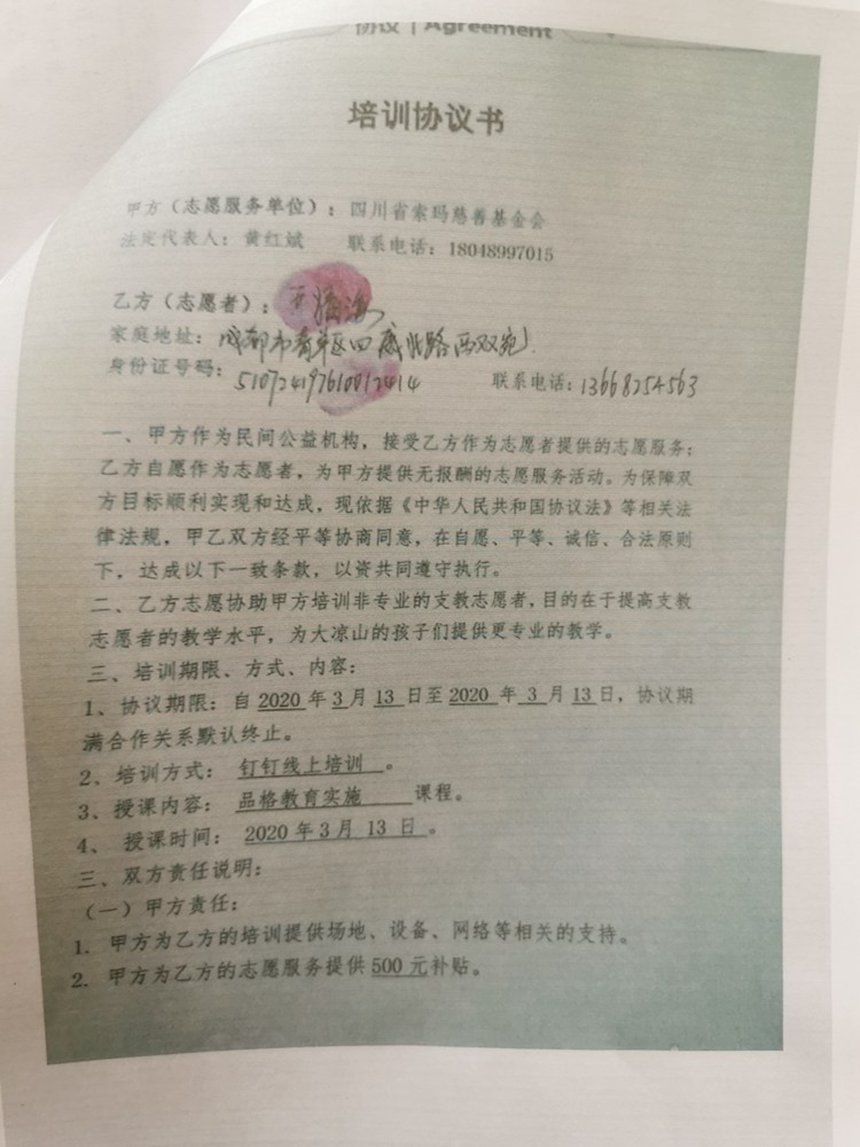 协议 | Agreement
培训协议书
甲方（志愿服务单位）：四川省索玛慈善基金会
法定代表人：黄红斌 联系电话：18048997015
乙方（志愿者）：
家庭地址：成都市青羊区四威北路西双苑
身份证号码：510724197610012414 联系电话：13668254563
一、甲方作为民间公益机构，接受乙方作为志愿者提供的志愿服务；
乙方自愿作为志愿者，为甲方提供无报酬的志愿服务活动。为保障双
方目标顺利实现和达成，现依据《中华人民共和国协议法》等相关法
律法规，甲乙双方经平等协商同意，在自愿、平等、诚信、合法原则
下，达成以下一致条款，以资共同遵守执行。
二、乙方志愿协助甲方培训非专业的支教志愿者，目的在于提高支教
志愿者的教学水平，为大凉山的孩子们提供更专业的教学。
三、培训期限、方式、内容：
1、协议期限：自 2020 年 3 月 13 日至 2020 年 3 月 13 日，协议期
满合作关系默认终止。
2、培训方式： 钉钉线上培训 。
3、授课内容： 品格教育实施 课程。
4、 授课时间： 2020 年 3 月 13 日 。
三、双方责任说明：
（一）甲方责任：
1. 甲方为乙方的培训提供场地、设备、网络等相关的支持。
2. 甲方为乙方的志愿服务提供 500 元补贴。